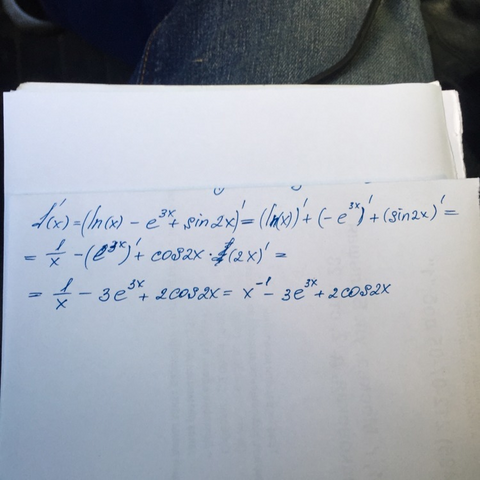 f'(x)=(ln(x) - e^3x + sin2x)' = (ln(x))' + (-e^3x)' + (sin2x)' =
= 1/x - (e^3x)' + cos2x · (2x)' =
= 1/x - 3e^3x + 2cos2x = x^-1 - 3e^3x + 2cos2x